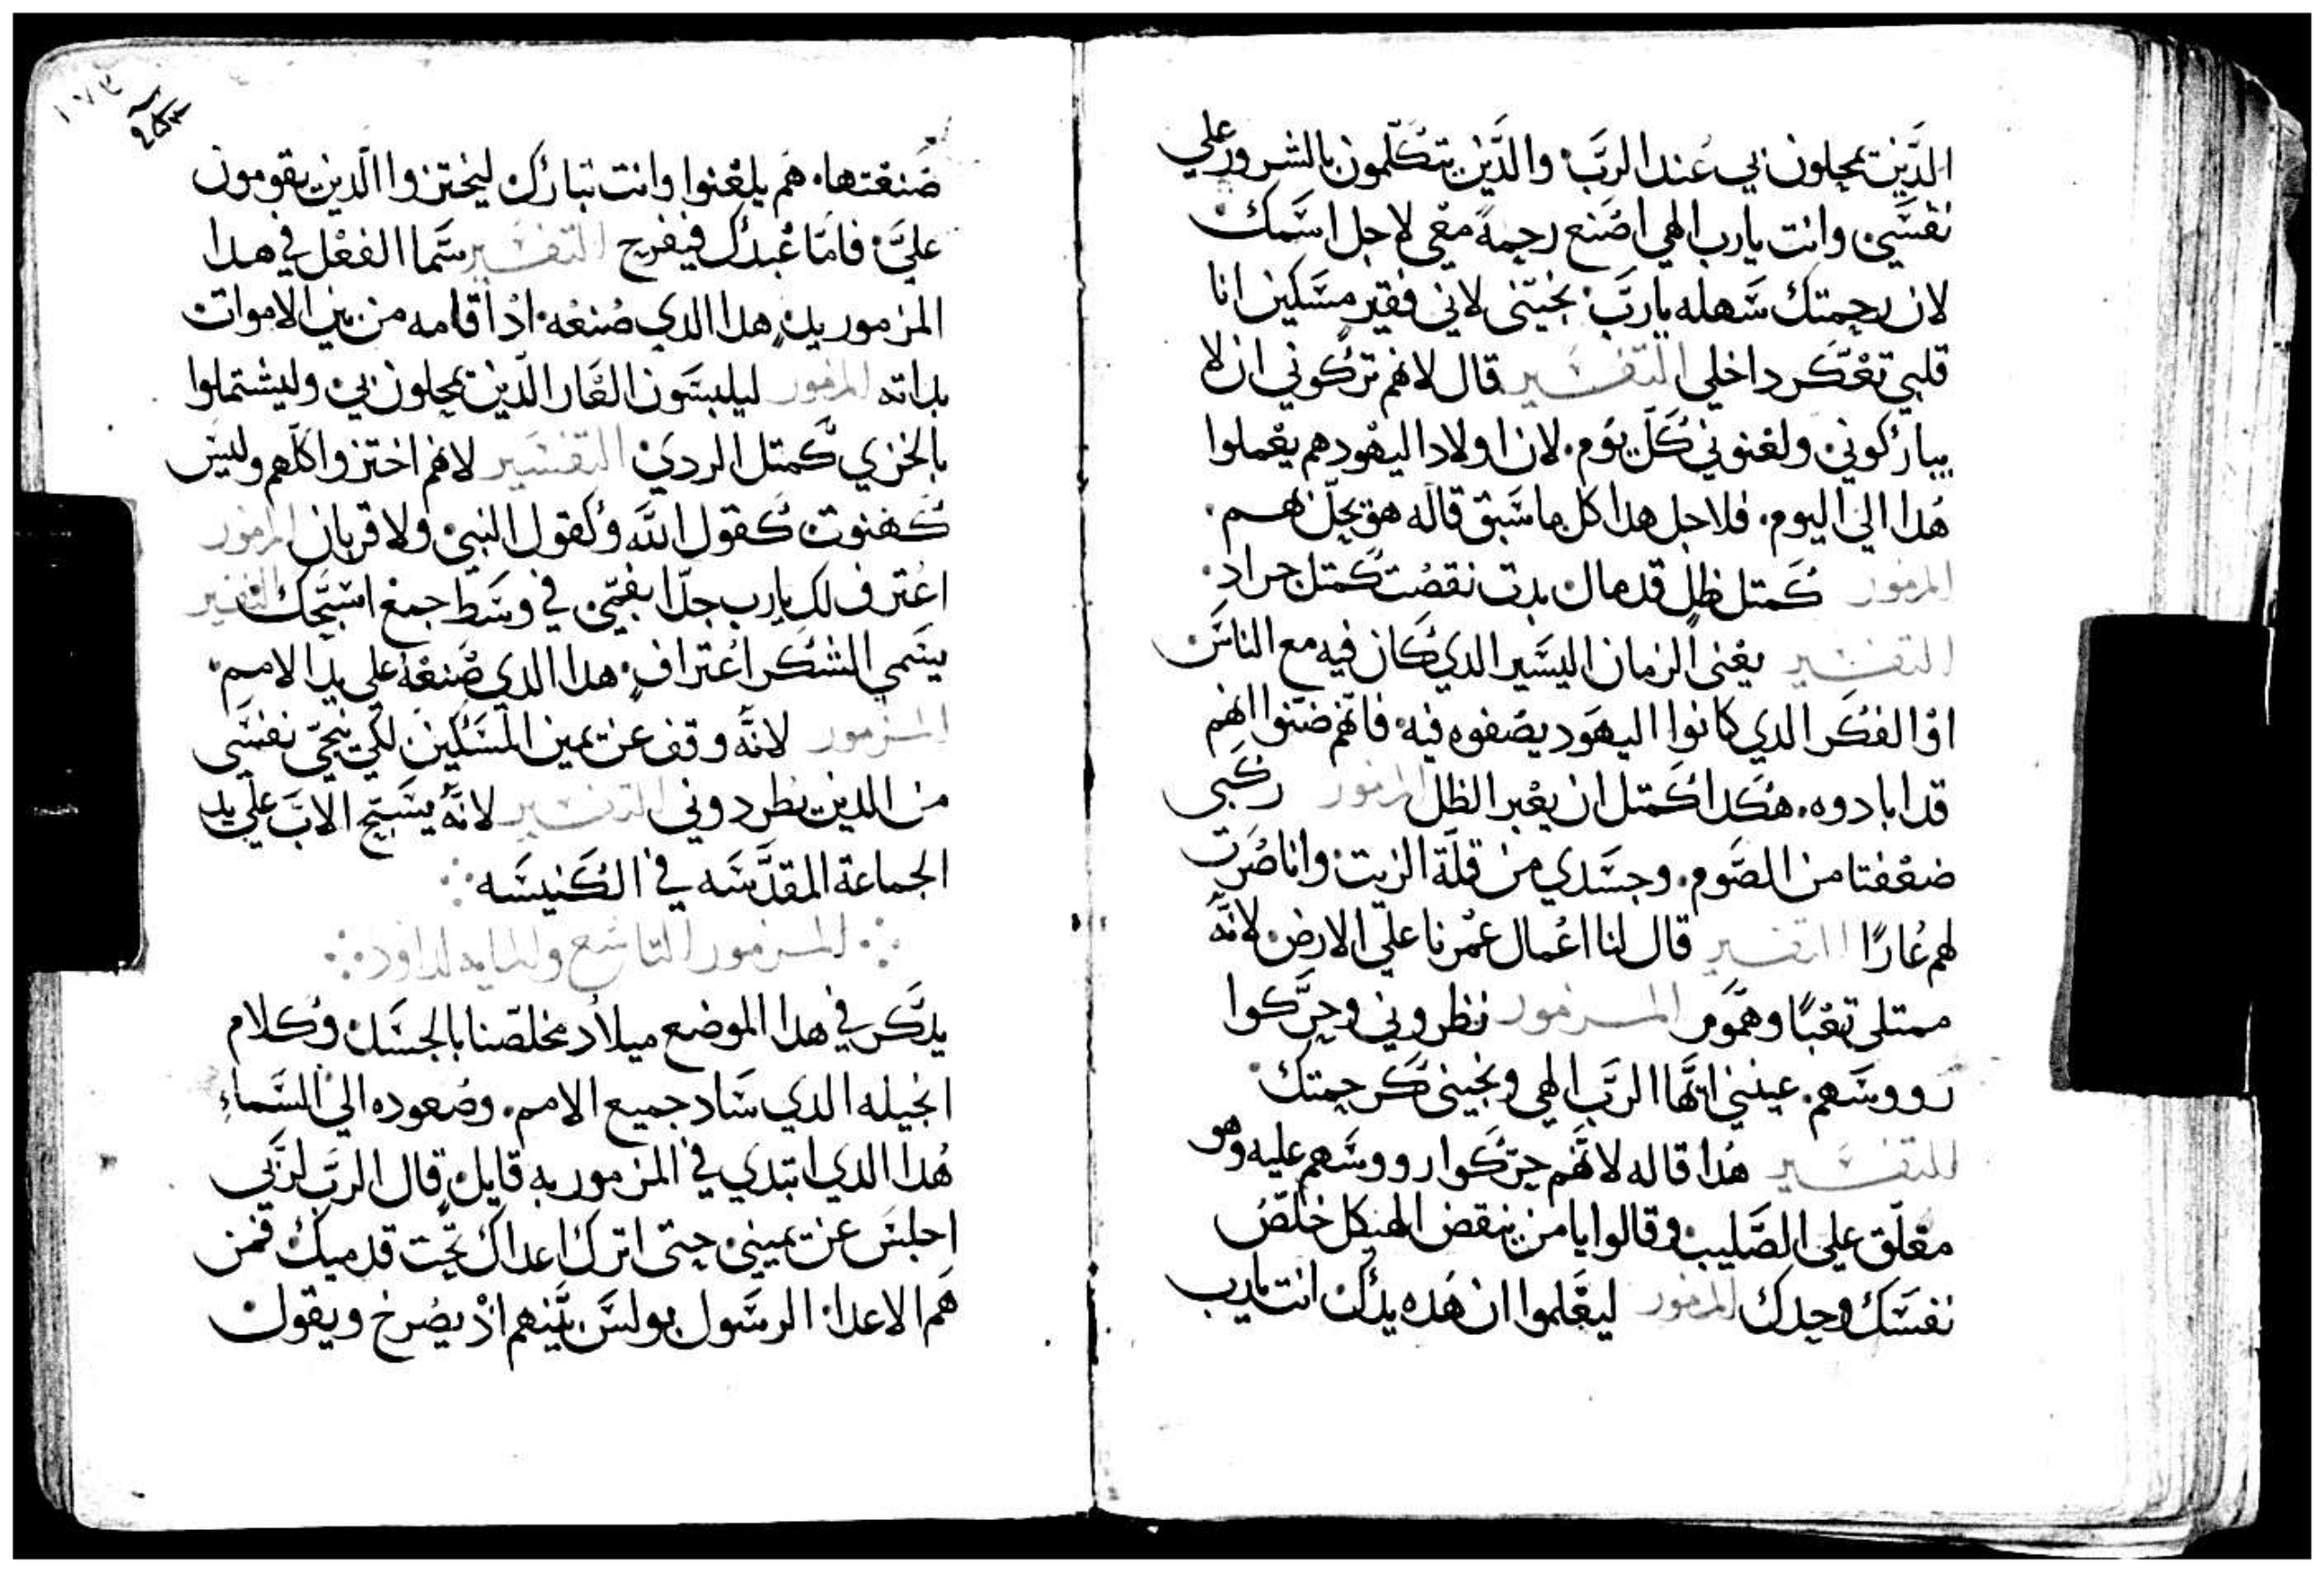 الدَّين يمحلون بي عند الربَّ. والدَّين يتكلمون بالشرور علي
نفسي وانت يارب الهي اصنع رحمةً معي لاجل اسمك
لان رحمتك سهله يا ربَّ. نجيّني لاني فقير مسكين انا
قلبي تعكّر داخلي التفسير قال لانهم تركوني ان لا
يباركوني ولعنوني كلّ يوم. لان اولاد اليهود هم يعملوا
هدا الي اليوم. فلاجل هدا كل ما سبق قاله هو يحلّ بهم.
المزمور كمتل ظلٍ قد مال بدت نقصت كمتل جراد.
التفسير يعني الزمان اليسير الدي كان فيه مع الناس
او الفكر الدي كانوا اليهود يصفوه فيه. فانهم ضنّوا انهم
قد ابادوه. هكدا كمتل ان يعبر الظل المزمور ركبي
ضعفتا من الصوم. وجسدي من قلّة الزيت. وانا صُرت
لهم عارًا التفسير قال لنا اعمال عمرنا علي الارض. لانّه
ممتلي تعبًا وهموم المزمور نظروني وحرَّكوا
رووسهم. عينني ايها الربّ الهي ونجيني كرحمتك.
التفسير هدا قاله لانهم حرّكوا رووسهم عليه وهو
معلّق علي الصَّليب. وقالوا يا من ينقض الهيكل خلّص
نفسك وحدك المزمور ليعلموا ان هده يدك. انت يارب
١٧٣
صنعتها. هم يلعنوا وانت تبارك ليختزوا الدين يقومون
عليّ. فامّا عبدك فيفرح التفسير سمّا الفعل في هدا
المزمور يدٍ هدا الدي صنعه. اد اقامه من بين الاموات
بداته المزمور ليلبسون العار الدّين يمحلون بي. وليشتملوا
بالخزي كمتل الردي. التفسير لانهم اختزوا كلّهم وليس
كهنوت كقول الله وكقول النبي ولا قربان المزمور
اعترف لك يارب جدّا بفمّي في وسط جمع اسبّحك التفسير
يسمي الشكر اعترافٍ. هدا الدي صنعه علي يد الامم.
المزمور لانّه وقف عن يمين المسكين لكي ينجّي نفسي
من الدين يطردوني التفسير لانّه يسبّح الاب علي يد
الجماعة المقدّسه في الكنيسه
المزمور التاسع والمايه لداود
يدّكر في هدا الموضع ميلاد مخلصنا بالجسد. وكلام
انجيله الدي ساد جميع الامم. وصعوده الي السماء
هدا الدي ابتدي في المزمور به قايلٍ قال الربّ لربّي
اجلس عن يميني حتى اترك اعداك تحت قدميك. فمن
هم الاعدا. الرسول بولس بيّنهم اذ يصرخ ويقول.